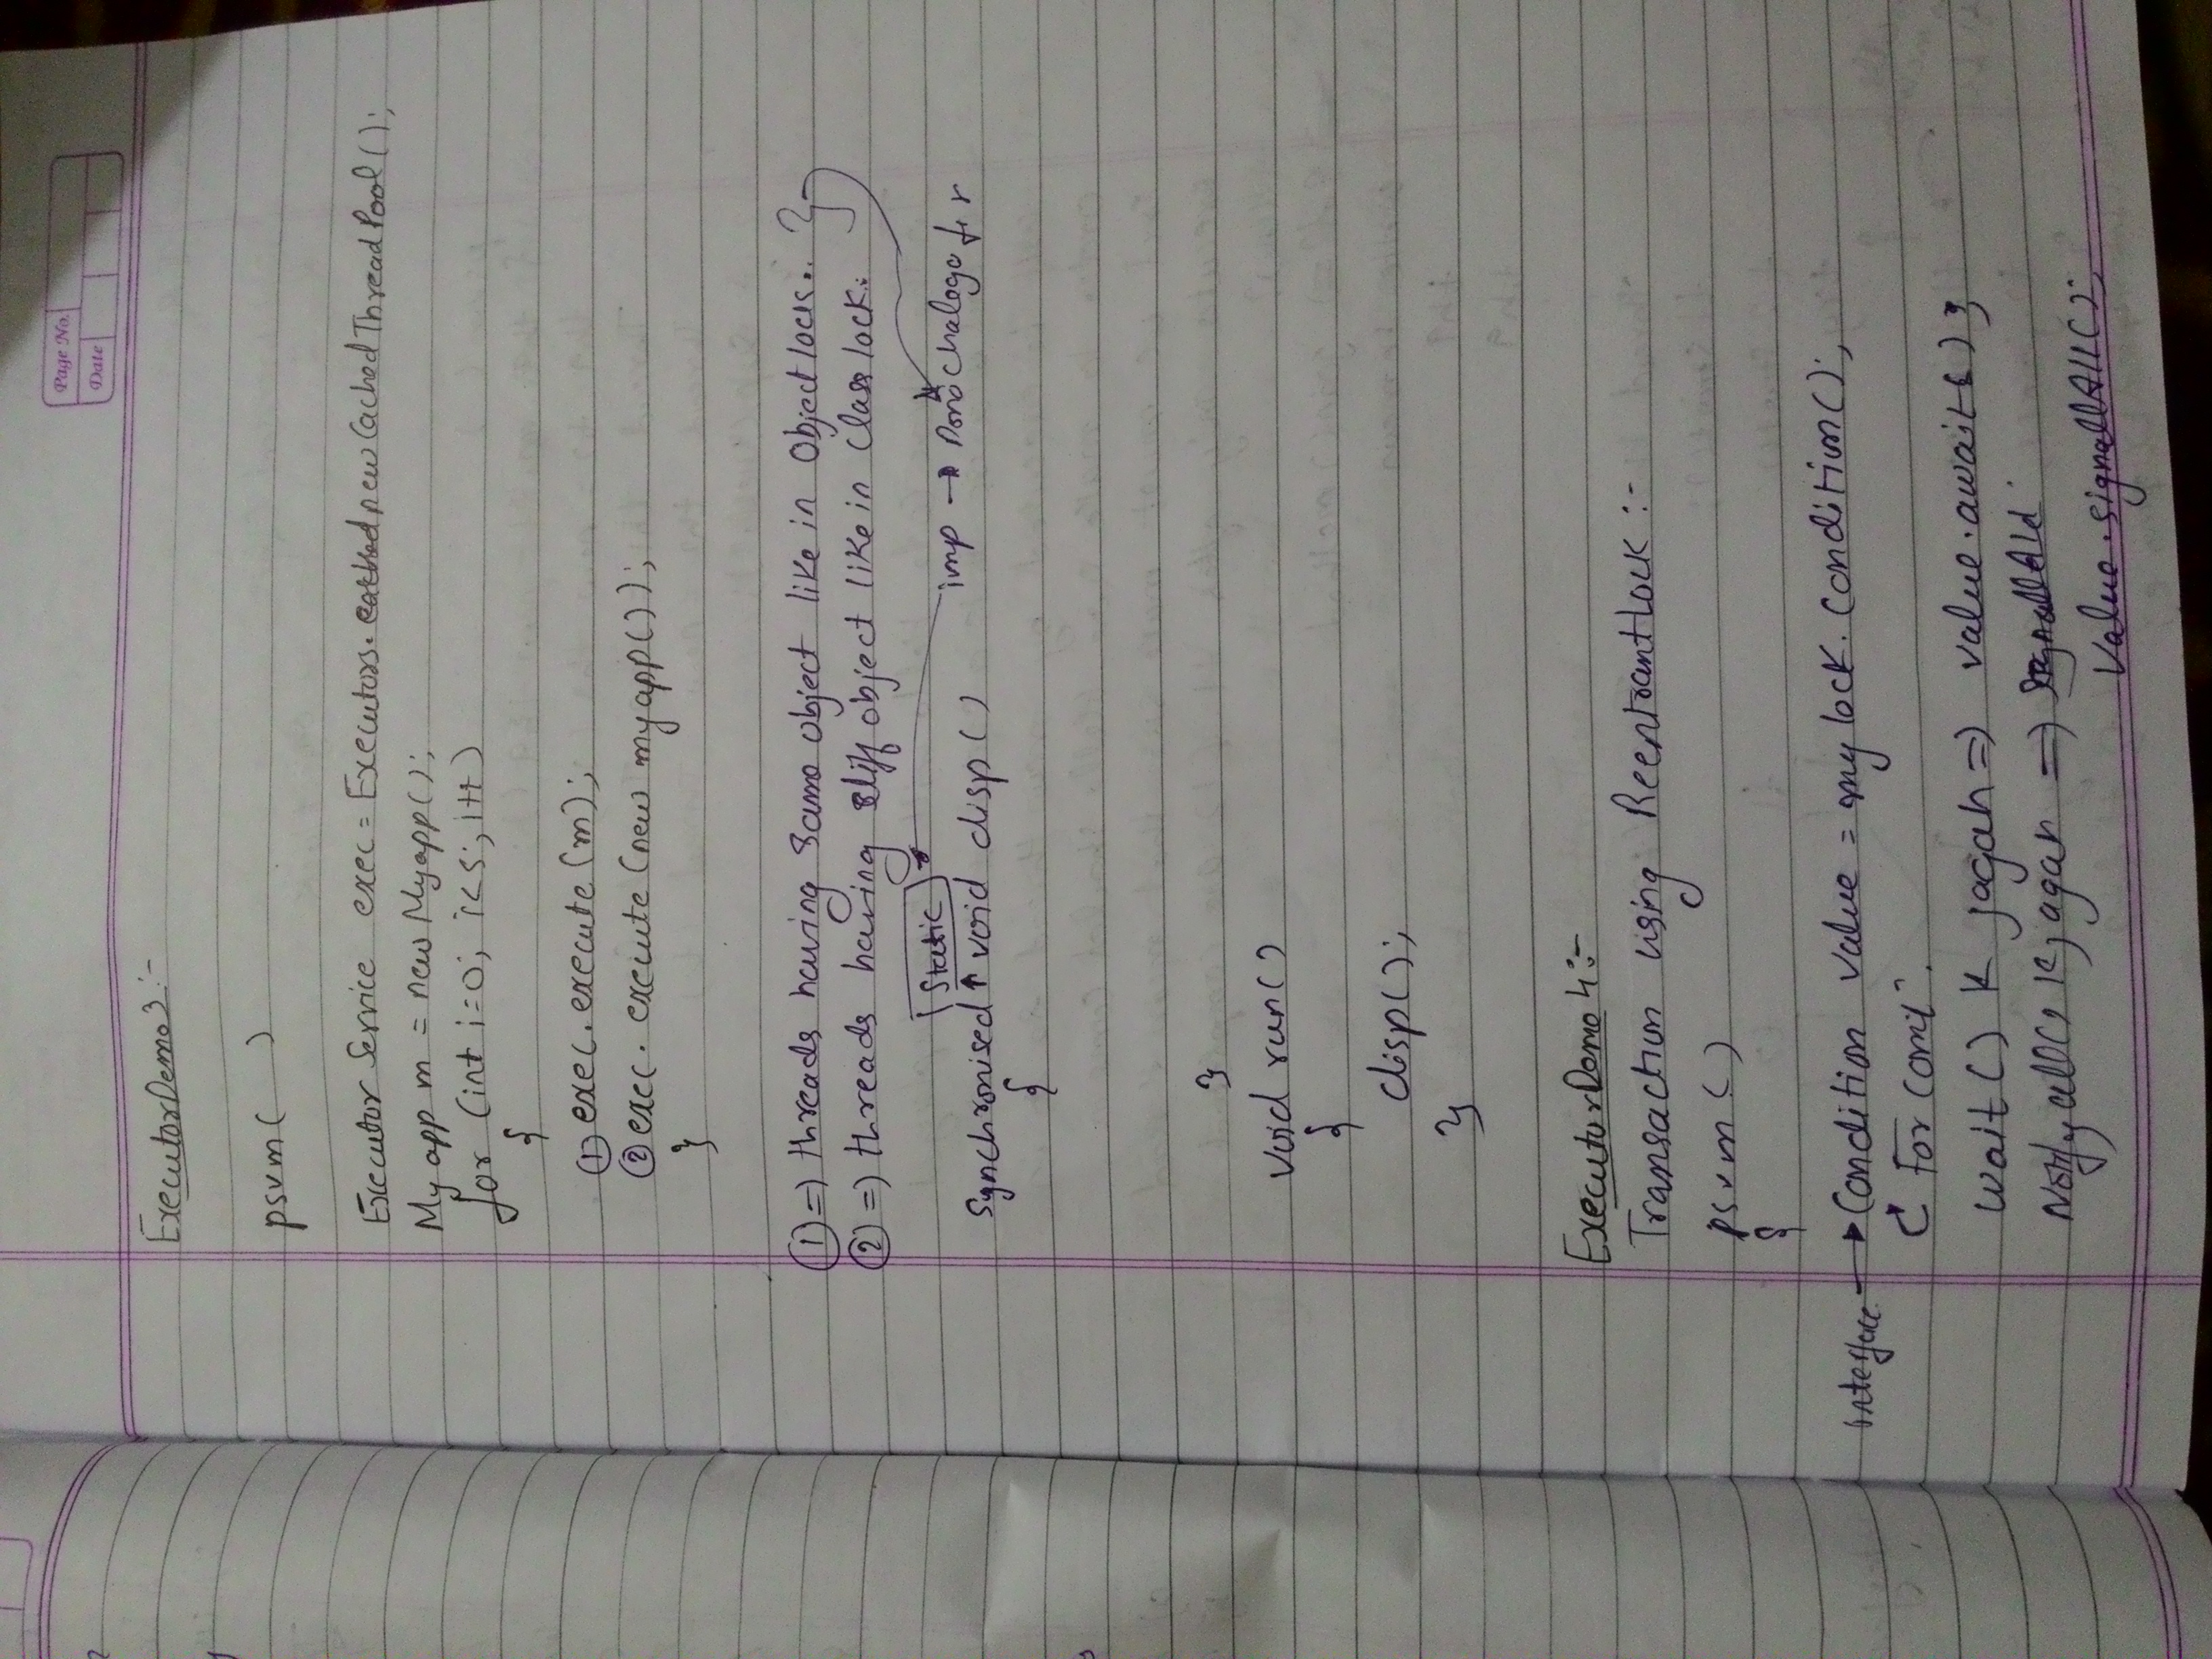 Page No.
Date
ExecutorDemo3:-
psvm( )
Executor Service exec = Executors. newCachedThreadPool();
My app m = new Myapp();
for (int i=0; i<5; i++)
{
① exec.execute(m);
② exec. execute (new myapp());
}
① => threads having same object like in Object lock.. }
② => threads having diff object like in Class lock.
Static
imp → Dono chalega for
Synchronised ↑ void disp()
{
}
void run()
{
disp();
}
ExecutorDemo4:-
Transaction using Reentrantlock :-
psvm()
{
Interface → Condition value = mylock. Condition();
For
wait() k jagah => value.await();
Notifyall() k jagah => SignallAll
Value.signallAll();